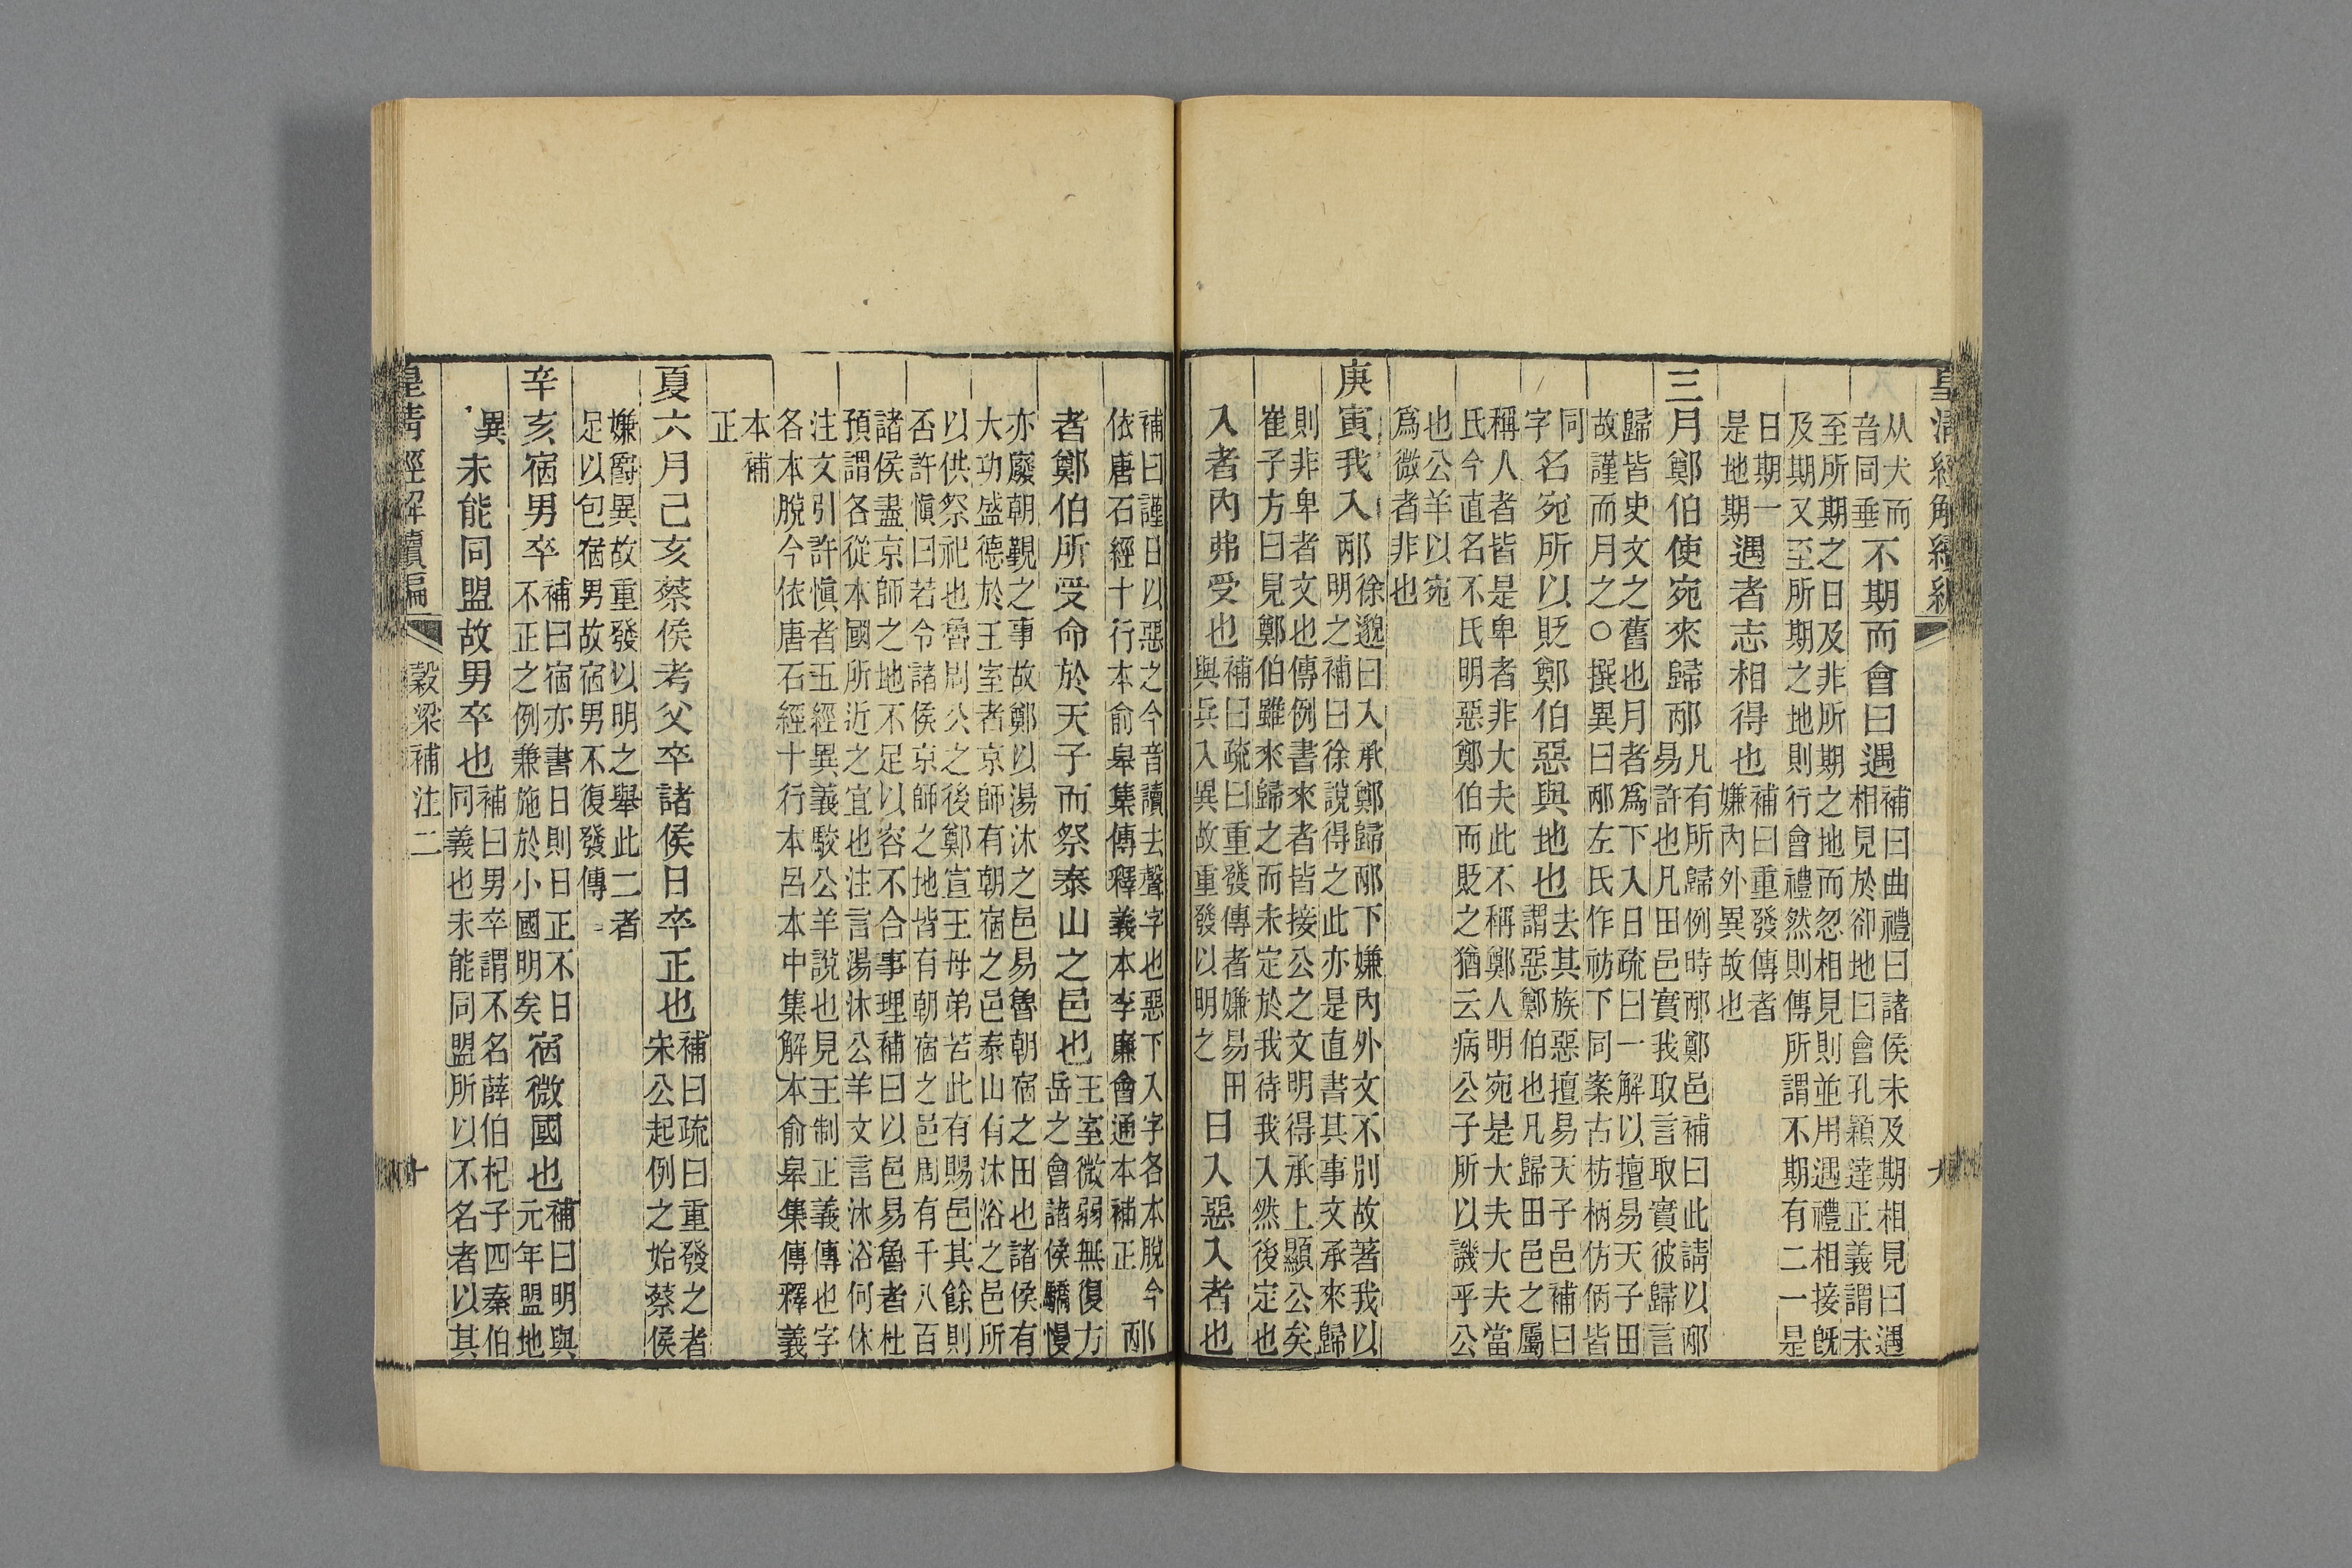 皇清經解續編 九
从犬而
音同垂
不期而會曰遇
補曰曲禮曰諸侯未及期相見曰遇
相見於卻地曰會孔穎達正義謂未
至所期之日及非所期之地而忽相見則並用遇禮相接旣
及期又至所期之地則行會禮然則傳所謂不期有二一是
日期一
是地期
遇者志相得也
補曰重發傳者
嫌內外異故也
三月鄭伯使宛來歸邴
凡有所歸例時邴鄭邑補曰此請以邴
易許也凡田邑實我取言取實彼歸言
歸皆史文之舊也月者爲下入日疏曰一解以擅易天子田
故謹而月之○撰異曰邴左氏作祊下同案古枋柄仿怲皆
同
字
名宛所以貶鄭伯惡與地也
去其族惡擅易天子邑補曰
謂惡鄭伯也凡歸田邑之屬
稱人者皆是卑者非大夫此不稱鄭人明宛是大夫大夫當
氏今直名不氏明惡鄭伯而貶之猶云病公子所以譏乎公
也公羊以宛
爲微者非也
庚寅我入邴
徐邈曰入承鄭歸邴下嫌內外文不別故著我以
明之補曰徐說得之此亦是直書其事文承來歸
則非卑者文也傳例書來者皆接公之文明得承上顯公矣
崔子方曰見鄭伯雖來歸之而未定於我待我入然後定也
入者內弗受也
補曰疏曰重發傳者嫌易田
與兵入異故重發以明之
日入惡入者也
補曰謹日以惡之今音讀去聲字也惡下入字各本脫今
依唐石經十行本俞皋集傳釋義本李廉會通本補正
邴
者鄭伯所受命於天子而祭泰山之邑也
王室微弱無復方
岳之會諸侯驕慢
亦廢朝覲之事故鄭以湯沐之邑易魯朝宿之田也諸侯有
大功盛德於王室者京師有朝宿之邑泰山有沐浴之邑所
以供祭祀也魯周公之後鄭宣王母弟若此有賜邑其餘則
否許愼曰若令諸侯京師之地皆有朝宿之邑周有千八百
諸侯盡京師之地不足以容不合事理補曰以邑易魯者杜
預謂各從本國所近之宜也注言湯沐公羊文言沐浴何休
注文引許愼者五經異義駁公羊說也見王制正義傳也字
各本脫今依唐石經十行本呂本中集解本俞皋集傳釋義
本補
正
夏六月己亥蔡侯考父卒諸侯日卒正也
補曰疏曰重發之者
宋公起例之始蔡侯
嫌爵異故重發以明之舉此二者
足以包宿男故宿男不復發傳
辛亥宿男卒
補曰宿亦書日則日正不日
不正之例兼施於小國明矣
宿微國也
補曰明與
元年盟地
異
未能同盟故男卒也
補曰男卒謂不名薛伯杞子四秦伯
同義也未能同盟所以不名者以其
皇清經解續編 穀梁補注二 十